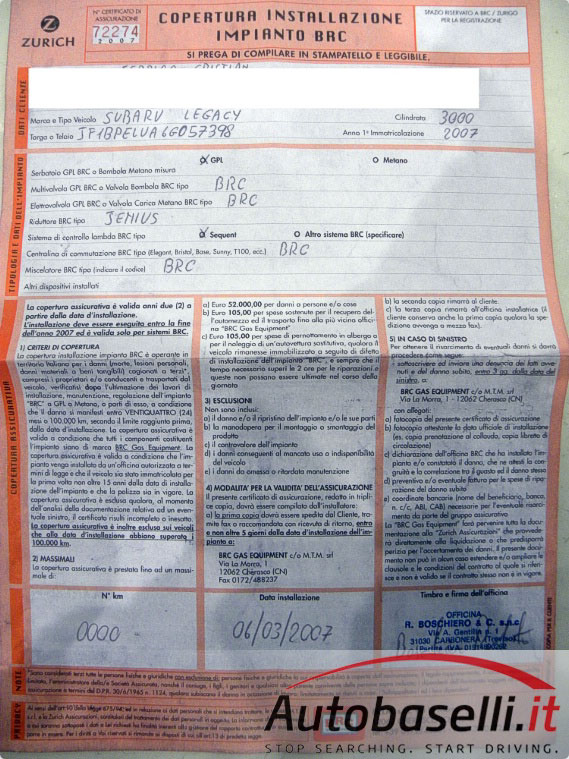 ZURICH
N° CERTIFICATO DI
ASSICURAZIONE
72274
2007
COPERTURA INSTALLAZIONE
IMPIANTO BRC
SPAZIO RISERVATO A BRC / ZURIGO
PER LA REGISTRAZIONE
SI PREGA DI COMPILARE IN STAMPATELLO E LEGGIBILE,
DATI CLIENTE
Marca e Tipo Veicolo SUBARU LEGACY Cilindrata 3000
Targa o Telaio JF1BPELUA6G057398 Anno 1ª Immatricolazione 2007
TIPOLOGIA E DATI DELL'IMPIANTO
X GPL O Metano
Serbatoio GPL BRC o Bombola Metano misura
Multivalvola GPL BRC o Valvola Bombola BRC tipo BRC
Elettrovalvola GPL BRC o Valvola Carica Metano BRC tipo BRC
Riduttore BRC tipo JENIUS
Sistema di controllo lambda BRC tipo X Sequent O Altro sistema BRC (specificare)
Centralina di commutazione BRC tipo (Elegant, Bristol, Base, Sunny, T100, ecc.) BRC
Miscelatore BRC tipo (indicare il codice) BRC
Altri dispositivi installati
COPERTURA ASSICURATIVA
La copertura assicurativa è valida anni due (2) a
partire dalla data d'installazione.
L'installazione deve essere eseguita entro la fine
dell'anno 2007 ed è valida solo per sistemi BRC.
1) CRITERI DI COPERTURA
La copertura installazione impianto BRC è operante in
territorio Italiano per i danni (morte, lesioni personali,
danni materiali a beni tangibili) cagionati a terzi
compresi i proprietari e/o conducenti e trasportati dal
veicolo, verificatisi dopo l'ultimazione dei lavori di
installazione, manutenzione, regolazione dell'impianto
"BRC" a GPL o Metano, o parti di esso, a condizione
che il danno si manifesti entro VENTIQUATTRO (24)
mesi o 100.000 km, secondo il limite raggiunto prima,
dalla data d'installazione. La copertura assicurativa è
valida a condizione che tutti i componenti costituenti
l'impianto siano di marca BRC Gas Equipment. La
copertura assicurativa è valida a condizione che l'im-
pianto venga installato da un'officina autorizzata a ter-
mini di legge e che il veicolo sia stato immatricolato per
la prima volta non oltre 15 anni dalla data di installa-
zione dell'impianto e che la polizza sia in vigore. La
copertura assicurativa è esclusa qualora, al momento
dell'analisi della documentazione relativa ad un even-
tuale sinistro, il certificato risulti incompleto o inesatto.
La copertura assicurativa è inoltre esclusa sui veicoli
che alla data d'installazione abbiano superato i
100.000 km.
2) MASSIMALI
La copertura assicurativa è prestata fino ad un massi-
male di:
a) Euro 52.000,00 per danni a persone e/o cose
b) Euro 105,00 per spese sostenute per il recupero del-
l'automezzo ed il trasporto fino alla più vicina offici-
na "BRC Gas Equipment"
c) Euro 105,00 per spese di pernottamento in albergo o
per il noleggio di un'autovettura sostitutiva, qualora il
veicolo rimanesse immobilizzato a seguito di difetto
di installazione dell'impianto "BRC", e sempre che il
tempo necessario superi le 2 ore per le riparazioni e
queste non possano essere ultimate nel corso della
giornata
3) ESCLUSIONI
Non sono inclusi:
a) il danno e/o il ripristino dell'impianto e/o le sue parti
b) la manodopera per il montaggio o smontaggio del
prodotto
c) il controvalore dell'impianto
d) i danni conseguenti al mancato uso o indisponibilità
del veicolo
e) i danni da omessa o ritardata manutenzione
4) MODALITA' PER LA VALIDITA' DELL'ASSICURAZIONE
Il presente certificato di assicurazione, redatto in tripli-
ce copia, dovrà essere compilato dall'installatore:
a) la prima copia dovrà essere spedita dal Cliente, tra-
mite fax o raccomandata con ricevuta di ritorno, entro
e non oltre 5 giorni dalla data d'installazione dell'im-
pianto a:
BRC GAS EQUIPMENT c/o M.T.M. srl
Via La Morra, 1
12062 Cherasco (CN)
Fax 0172/488237
b) la seconda copia rimarrà al cliente.
c) la terza copia rimarrà all'officina installatrice (il
cliente conserva anche la prima copia qualora la spe-
dizione avvenga a mezzo fax).
5) IN CASO DI SINISTRO
Per ottenere il risarcimento di eventuali danni si dovrà
procedere come segue:
sottoscrivere ed inviare una denuncia dei fatti avve-
nuti e del danno subito, entro 3 gg. dalla data del
sinistro, a:
BRC GAS EQUIPMENT c/o M.T.M. srl
Via La Morra, 1 - 12062 Cherasco (CN)
con allegati:
a) fotocopia del presente certificato di assicurazione
b) fotocopia attestante la data ufficiale di installazione
(es. copia prenotazione al collaudo, copia libretto di
circolazione)
c) dichiarazione dell'officina BRC che ha installato l'im-
pianto e/o constatato il danno, che ne attesti la con-
gruità e la correlazione tra il guasto ed il danno stesso
d) preventivo e/o eventuale fattura per le spese di ripa-
razione del danno subito
e) coordinate bancarie (nome del beneficiario, banca,
n. c/c, ABI, CAB) necessarie per l'eventuale risarci-
mento da parte del gruppo assicurativo
La "BRC Gas Equipment" farà pervenire tutta la docu-
mentazione alla "Zurich Assicurazioni" che provvede-
rà direttamente alla liquidazione o che predisporrà
perizia per l'accertamento dei danni. Il presente docu-
mento non può in alcun caso estendere e/o ampliare le
clausole e le condizioni del contratto al quale si riferi-
sce e non è valido se il contratto stesso non è in vigore.
N° km
0000
Data installazione
06/03/2007
Timbro e firma dell'officina
OFFICINA
R. BOSCHIERO & C. s.n.c.
Via A. Gentilin n. 1
31030 CARBONERA (Treviso)
COPIA PER IL CLIENTE
NOTE
PRIVACY
BRC
Autobaselli.it
STOP SEARCHING. START DRIVING.